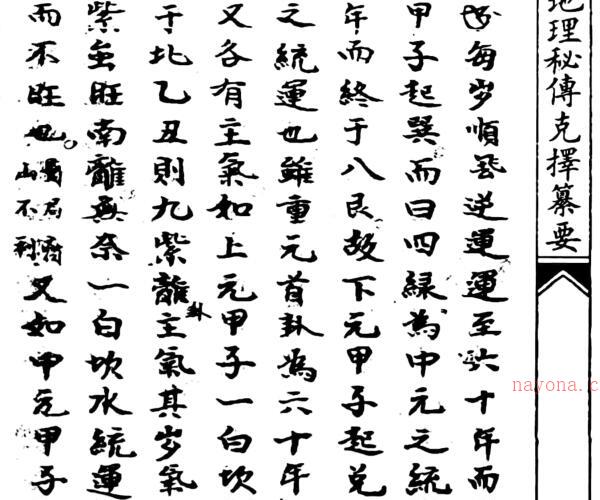 地理秘傳克擇纂要
每岁順飛逆運運至六十年而
甲子起巽而曰四緑為中元之統
年而終于八艮故下元甲子起兑
之統運也雖重元首卦為六十年
又各有主氣如上元甲子一白坎
于北乙丑則九紫離卦主氣其岁氣
紫虽旺南離無奈一白坎水統運
而不旺也山不到又如中元甲子
nayona.c